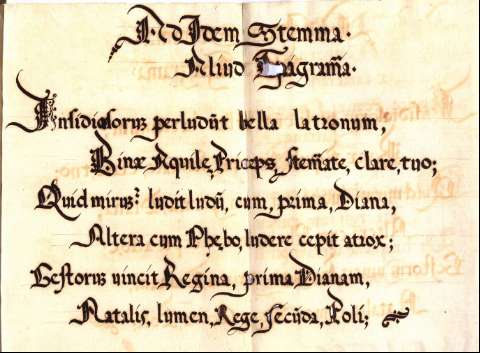 Ad Idem Stemma.
Aliud Epigram̃a.
Insidiosorum perludũt bella latronum,
Binæ Aquile, Priceps, stem̃ate, clare, tuo;
Quid mirum? ludit ludũ, cum, prima, Diana,
Altera cum Phębo, ludere cepit atrox;
Gestorum uincit Regina, prima Dianam,
Natalis, lumen, Rege, secũda, Poli;